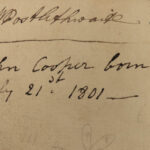 Postlethwaite
hn Cooper born
ly 21st 1801 —